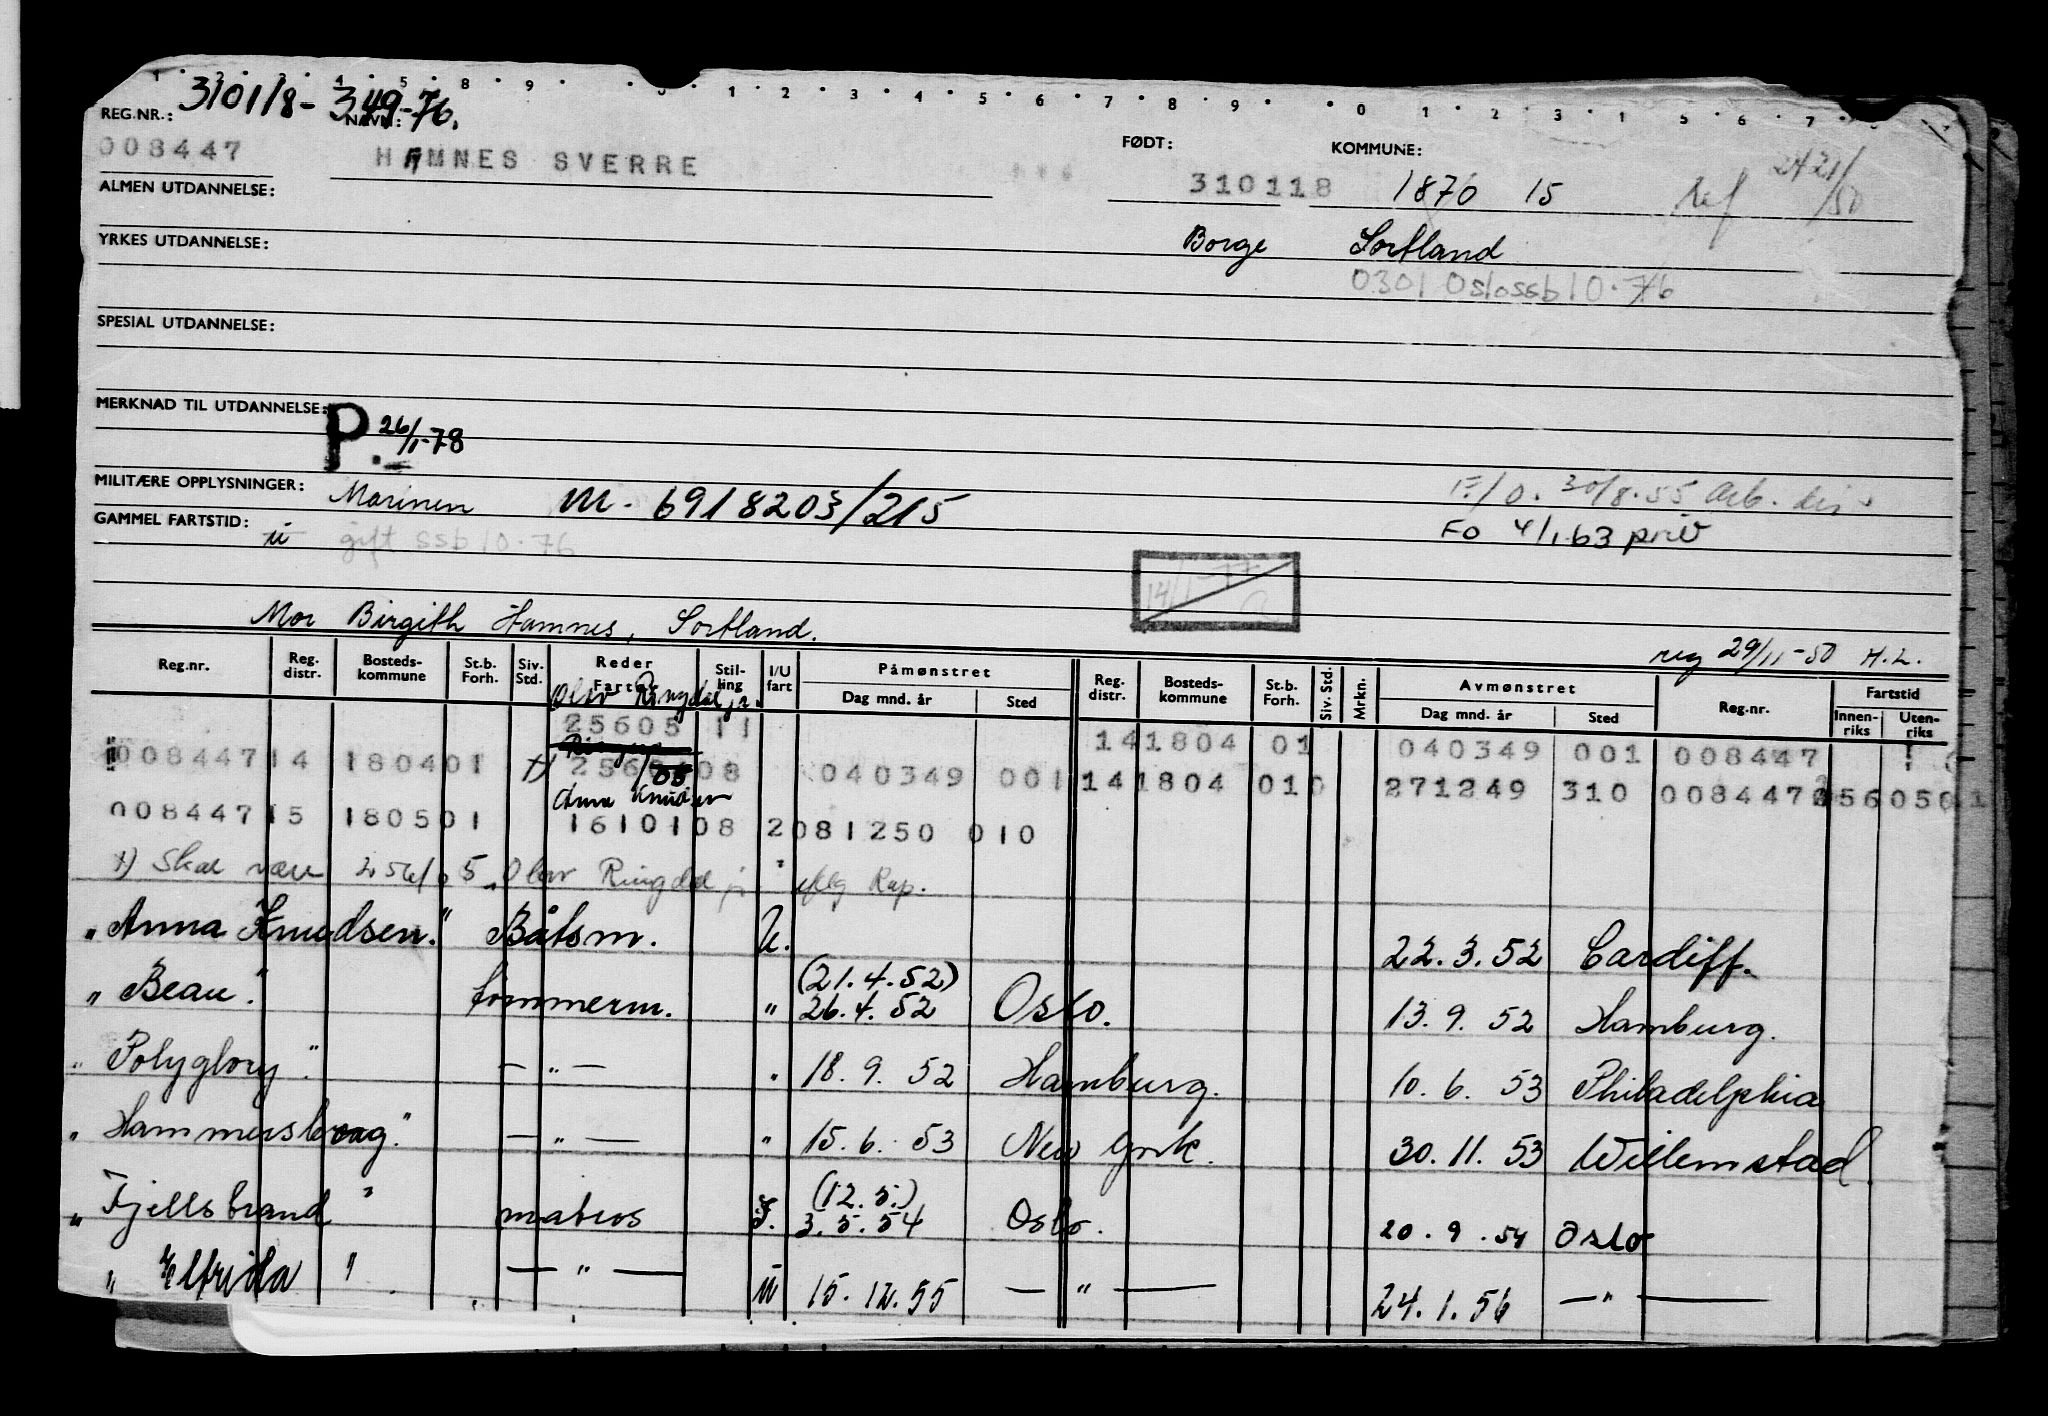 1 2 3 4 5 8 9 1 2 3 4 5 6 7 8 9 0 1 2 3 1 5 6 7
310118-349-76.
REG.NR.: NAVN:
008447 HAMNES SVERRE
FØDT: KOMMUNE:
310118 1870 15
ALMEN UTDANNELSE:
YRKES UTDANNELSE:
Borge Sortland
0301 Oslo ssb 10.76
SPESIAL UTDANNELSE:
MERKNAD TIL UTDANNELSE:
P. 26/1-78
MILITÆRE OPPLYSNINGER: Marinen M. 6918203/215
F/O. 30/8.55 Arb. dir
GAMMEL FARTSTID: u gift ssb 10.76
FO 4/1.63 priv
14/1-77
Mor Birgith Hamnes, Sortland.
reg 29/11-50 H.L.
Reg.nr. Reg. distr. Bosteds-kommune St.b. Forh. Siv. Std. Reder Fartøy Stil-ling I/U fart Påmønstret Dag mnd. år Sted Reg. distr. Bosteds-kommune St.b. Forh. Siv. Std. Mrkn. Avmønstret Dag mnd. år Sted Reg.nr. Fartstid Innen-riks Uten-riks
Olav Ringdal jr.
25605 11 141804 01 040349 001 008447
008447 14 1804 01 x) 08 040349 001 141804 010 271249 310 008447
Anna Knudsen
008447 15 1805 01 16101 08 2 081250 010
x) Skal være 256/05 Olav Ringdal jr iflg Rap.
"Anna Knudsen." Båtsm. U. 22.3.52 Cardiff.
(21.4.52)
"Beau". tømmerm. " 26.4.52 Oslo. 13.9.52 Hamburg.
"Polyglory". — " — " 18.9.52 Hamburg. 10.6.53 Philadelphia
"Hammersborg." — " — " 15.6.53 New York. 30.11.53 Willemstad.
(12.5.)
"Fjellsbrand" matros 3.5.54 Oslo. 20.9.54 Oslo
"Elfrida" — " — u 15.12.55 — " — 24.1.56 — " —